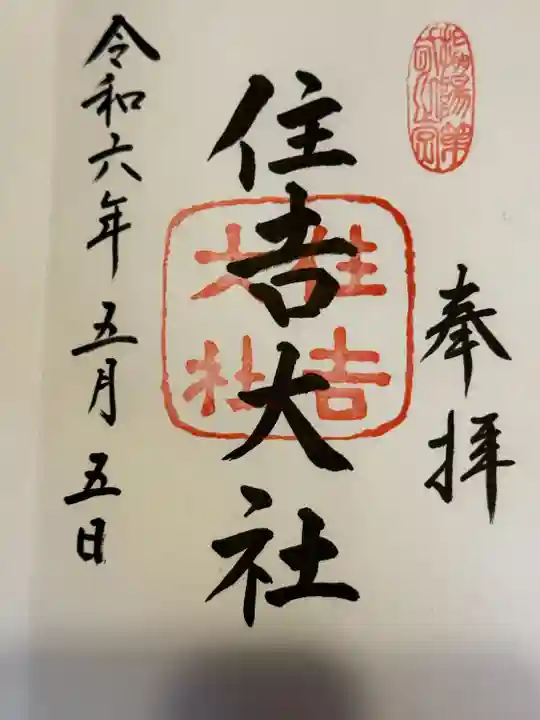 奉拝
住吉大社
住吉大社
令和六年五月五日